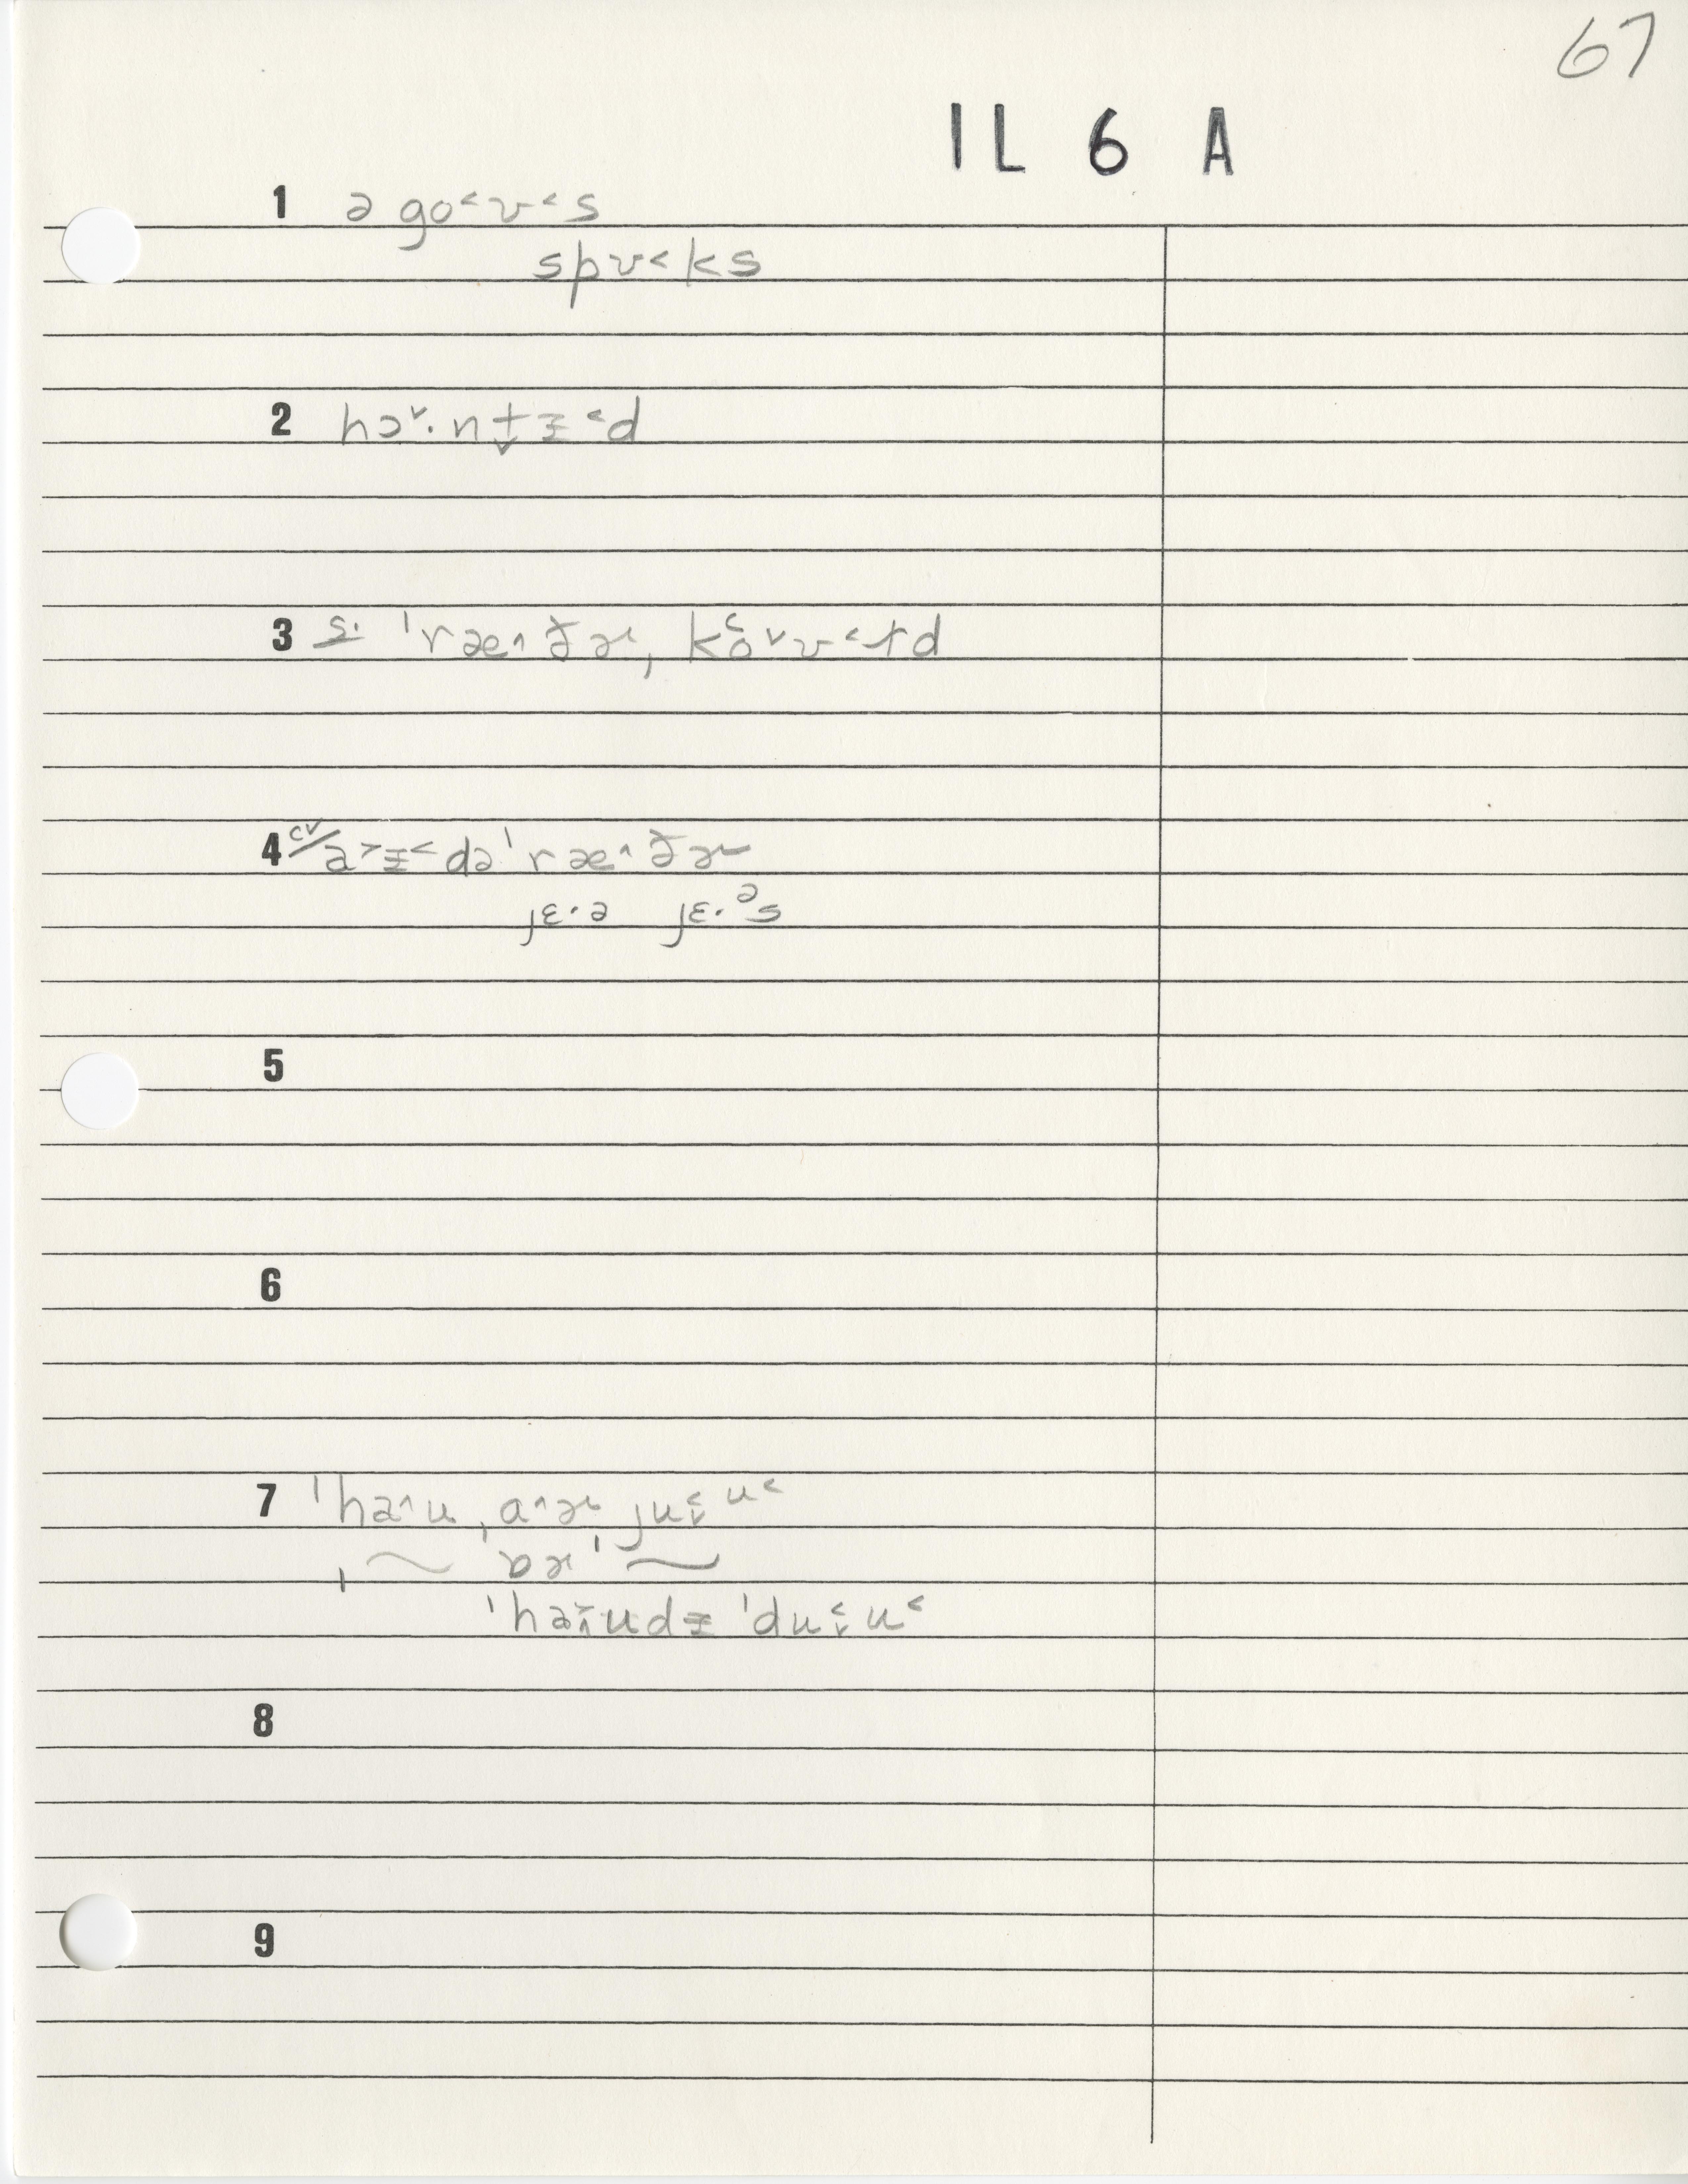 67
IL 6 A
1 ə go˂ʊ˂s
spʊ˂ks
2 hɔ˅·nt̬ɨ˂d
3 s· ˈræ˄ðɚ, kʽo˅ʊ˂ɫd
4 cv/ a˃ɨ˂dəˈræ˄ðɚ
jɛ·ə jɛ·ᵊs
5
6
7 ˈha˄u ˌa˄ɚ ju˂˅u˂
ˌ~ ɒɚ ˈ~
ˈha˃˄udɨ ˈdu˂˅u˂
8
9